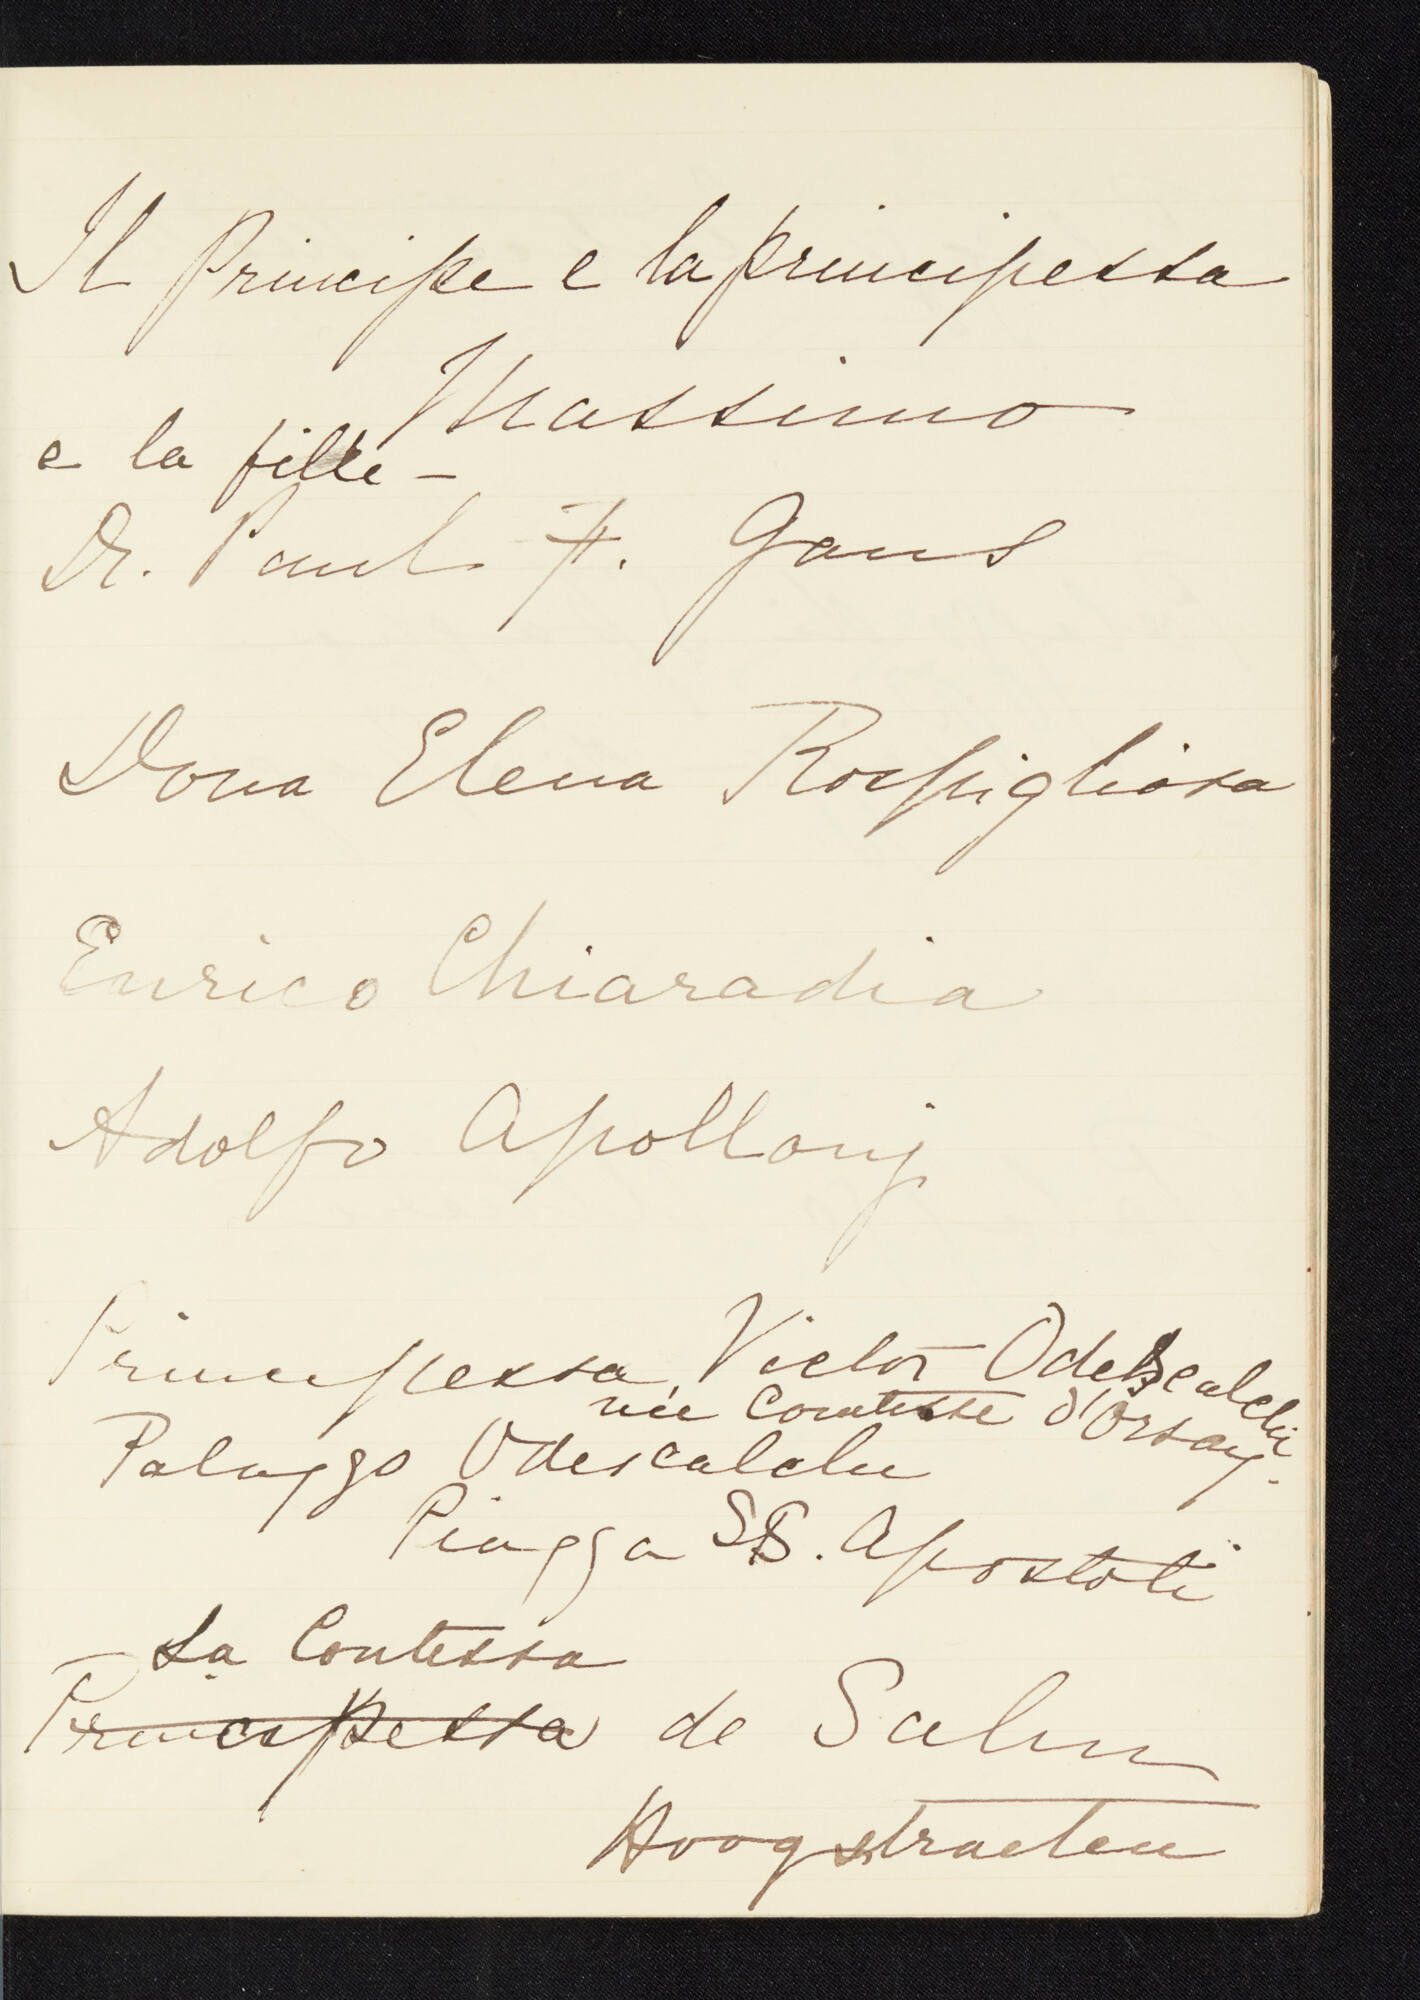 Il Principe e la principessa
Massimo
e la fille -
Dr. Paul F. Gans
Dona Elena Rospigliosa
Enrico Chiaradia
Adolfo Apollonj
Principessa Victor Odescalchi
née Comtesse d'Orsay.
Palazzo Odescalchi
Piazza SS. Apostoli
La Contessa
Principessa de Salm
Hoogstraeten